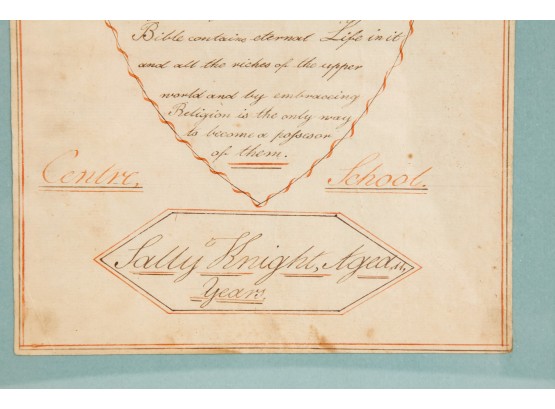 Bible contains eternal Life in it
and all the riches of the upper
world and by embracing
Religion is the only way
to become a possessor
of them.
Centre. School.
Sally Knight, Aged 11,
Years.